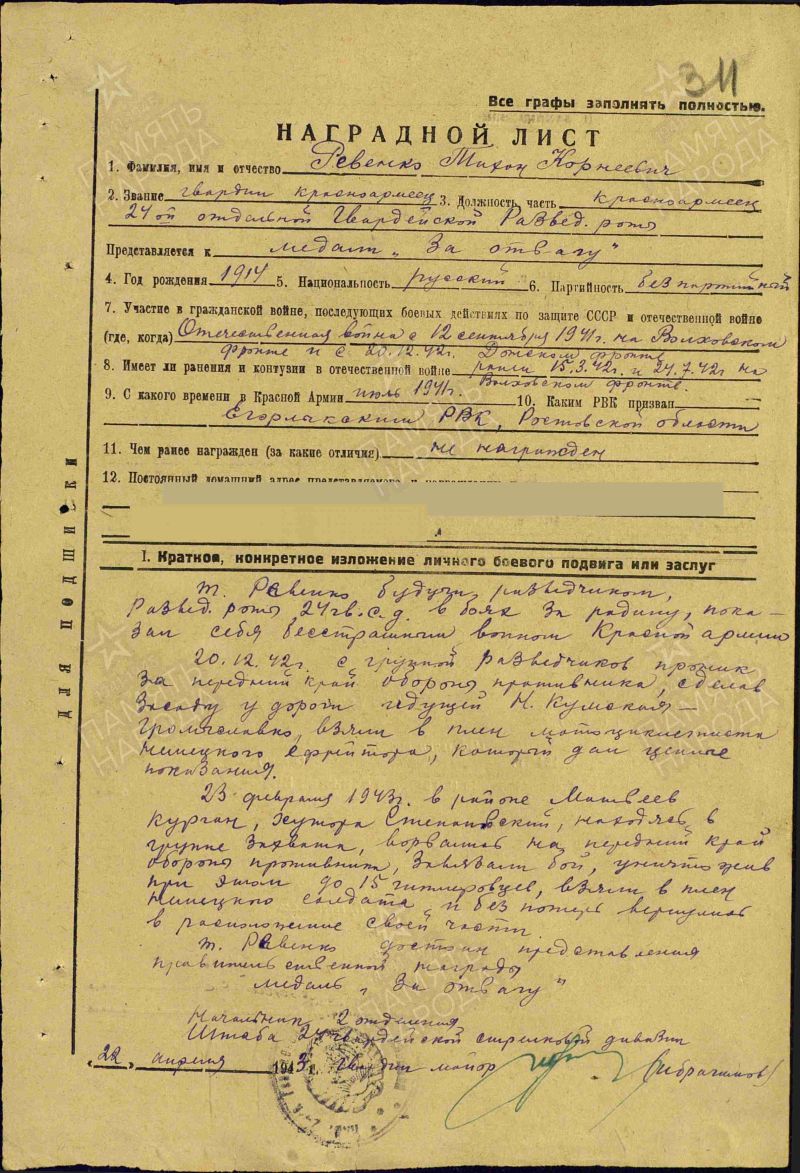 311
Все графы заполнять полностью.
НАГРАДНОЙ ЛИСТ
1. Фамилия, имя и отчество Ревенко Тихон Корнеевич
2. Звание гвардии красноармеец 3. Должность, часть красноармеец
24ой отдельной Гвардейской Развед. роты
Представляется к медали „За отвагу"
4. Год рождения 1914 5. Национальность русский 6. Партийность безпартийный
7. Участие в гражданской войне, последующих боевых действиях по защите СССР и отечественной войне
(где, когда) Отечественная война с 12 сентября 1941г. на Волховском
фронте и с 20.12.42г. Донском фронте
8. Имеет ли ранения и контузии в отечественной войне ранен 15.3.42г. и 24.7.42г на
Волховском фронте.
9. С какого времени в Красной Армии июль 1941г. 10. Каким РВК призван
Егорлакским РВК, Ростовской области
11. Чем ранее награжден (за какие отличия) не награжден
12. Постоянный домашний адрес представляемого к
I. Краткое, конкретное изложение личного боевого подвига или заслуг
т. Ревенко будучи разведчиком,
Развед. роты 24 гв.с.д. в боях за родину, пока-
зал себя бесстрашным воином Красной армии
20.12.42г. с группой разведчиков проник
за передний край обороны противника, сделав
засаду у дороги идущей Н. Кумская-
Громославка, взяли в плен мотоциклиста
немецкого ефрейтора, который дал ценные
показания.
23 февраля 1943г. в районе Матвеев
Курган, хутора Степановский, находясь в
группе захвата, ворвались на передний край
обороны противника, завязали бой, уничтожив
при этом до 15 гитлеровцев, взяли в плен
немецкого солдата и без потерь вернулись
в расположение своей части.
т. Ревенко достоин представления
правительственной награды
медаль „За отвагу"
Начальник 2 отделения
Штаба 24 гвардейской стрелковой дивизии
„22" апреля 1943 г. гвардии майор (Ибрагимов)
ДЛЯ ПОДШИВКИ
ПАМЯТЬ НАРОДА